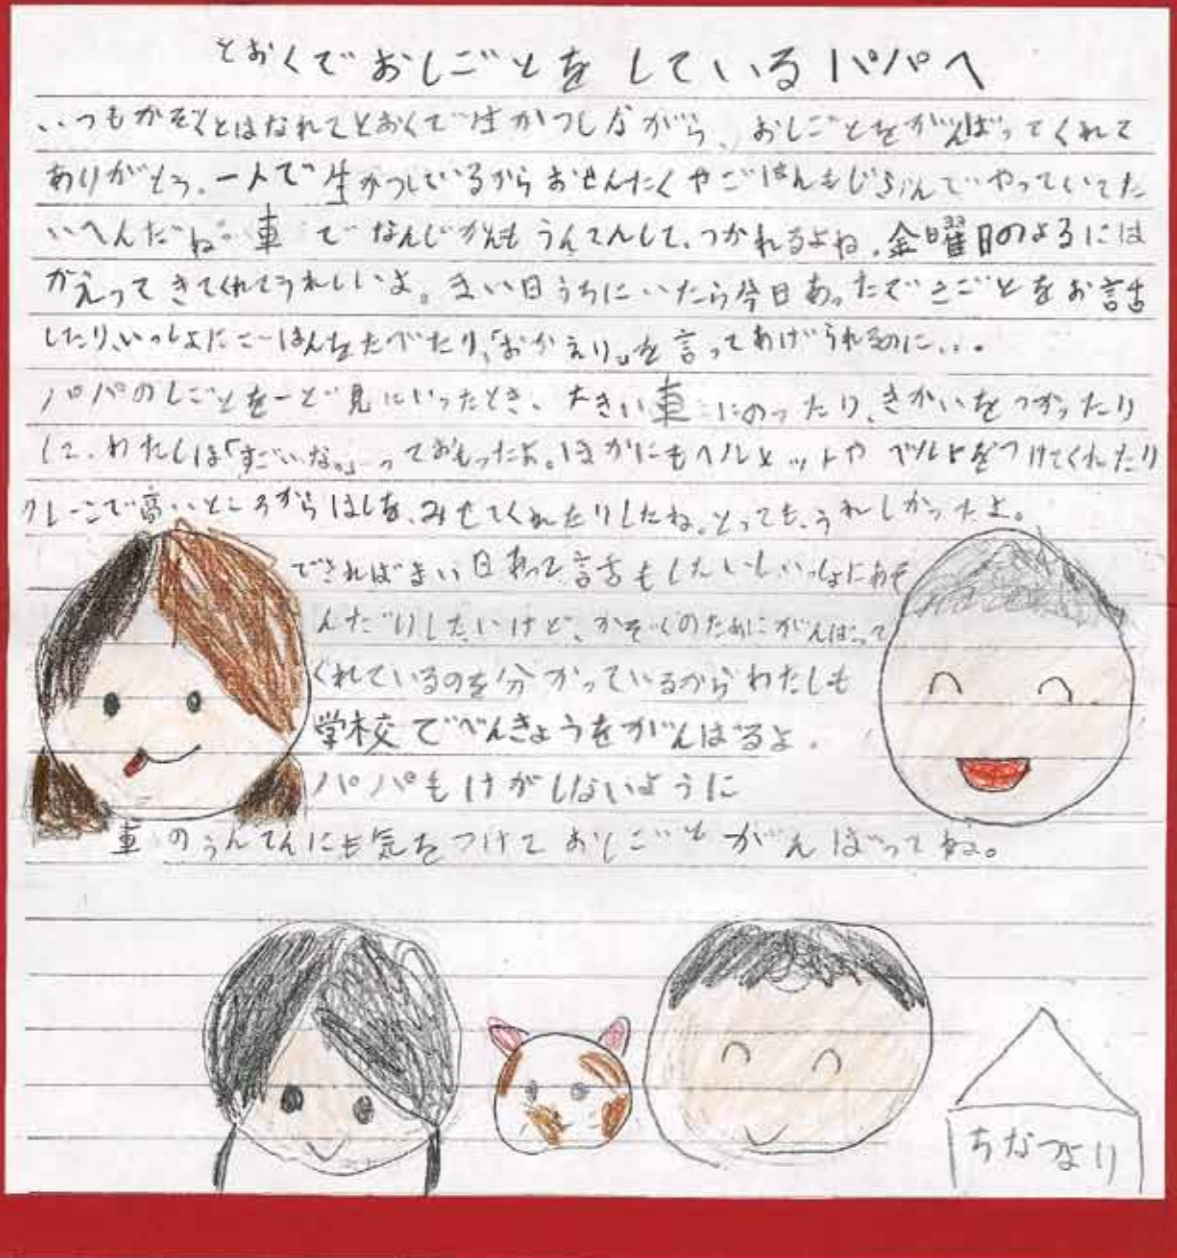 とおくでおしごとをしているパパへ
いつもかぞくとはなれてとおくで生かつしながら、おしごとをがんばってくれて
ありがとう。一人で生かつしているからおせんたくやごはんもじぶんでやっていてた
いへんだね。車でなんじかんもうんてんして、つかれるよね。金曜日のよるには
かえってきてくれてうれしいよ。まい日うちにいたら今日あったできごとをお話
したり、いっしょにごはんをたべたり、「おかえり。」を言ってあげられるのに...
パパのしごとを一ど見にいったとき、大きい車にのったり、きかいをつかったり
して、わたしは「すごいな。」っておもったよ。ほかにもヘルメットやベルトをつけてくれたり
クレーンで高いところからはしを、みせてくれたりしたね。とっても、うれしかったよ。
できればまい日あって話もしたいしいっしょにあそ
んだりしたいけど、かぞくのためにがんばって
くれているのを分かっているからわたしも
学校でべんきょうをがんばるよ。
パパもけがしないように
車のうんてんにも気をつけておしごとがんばってね。
ちなつより